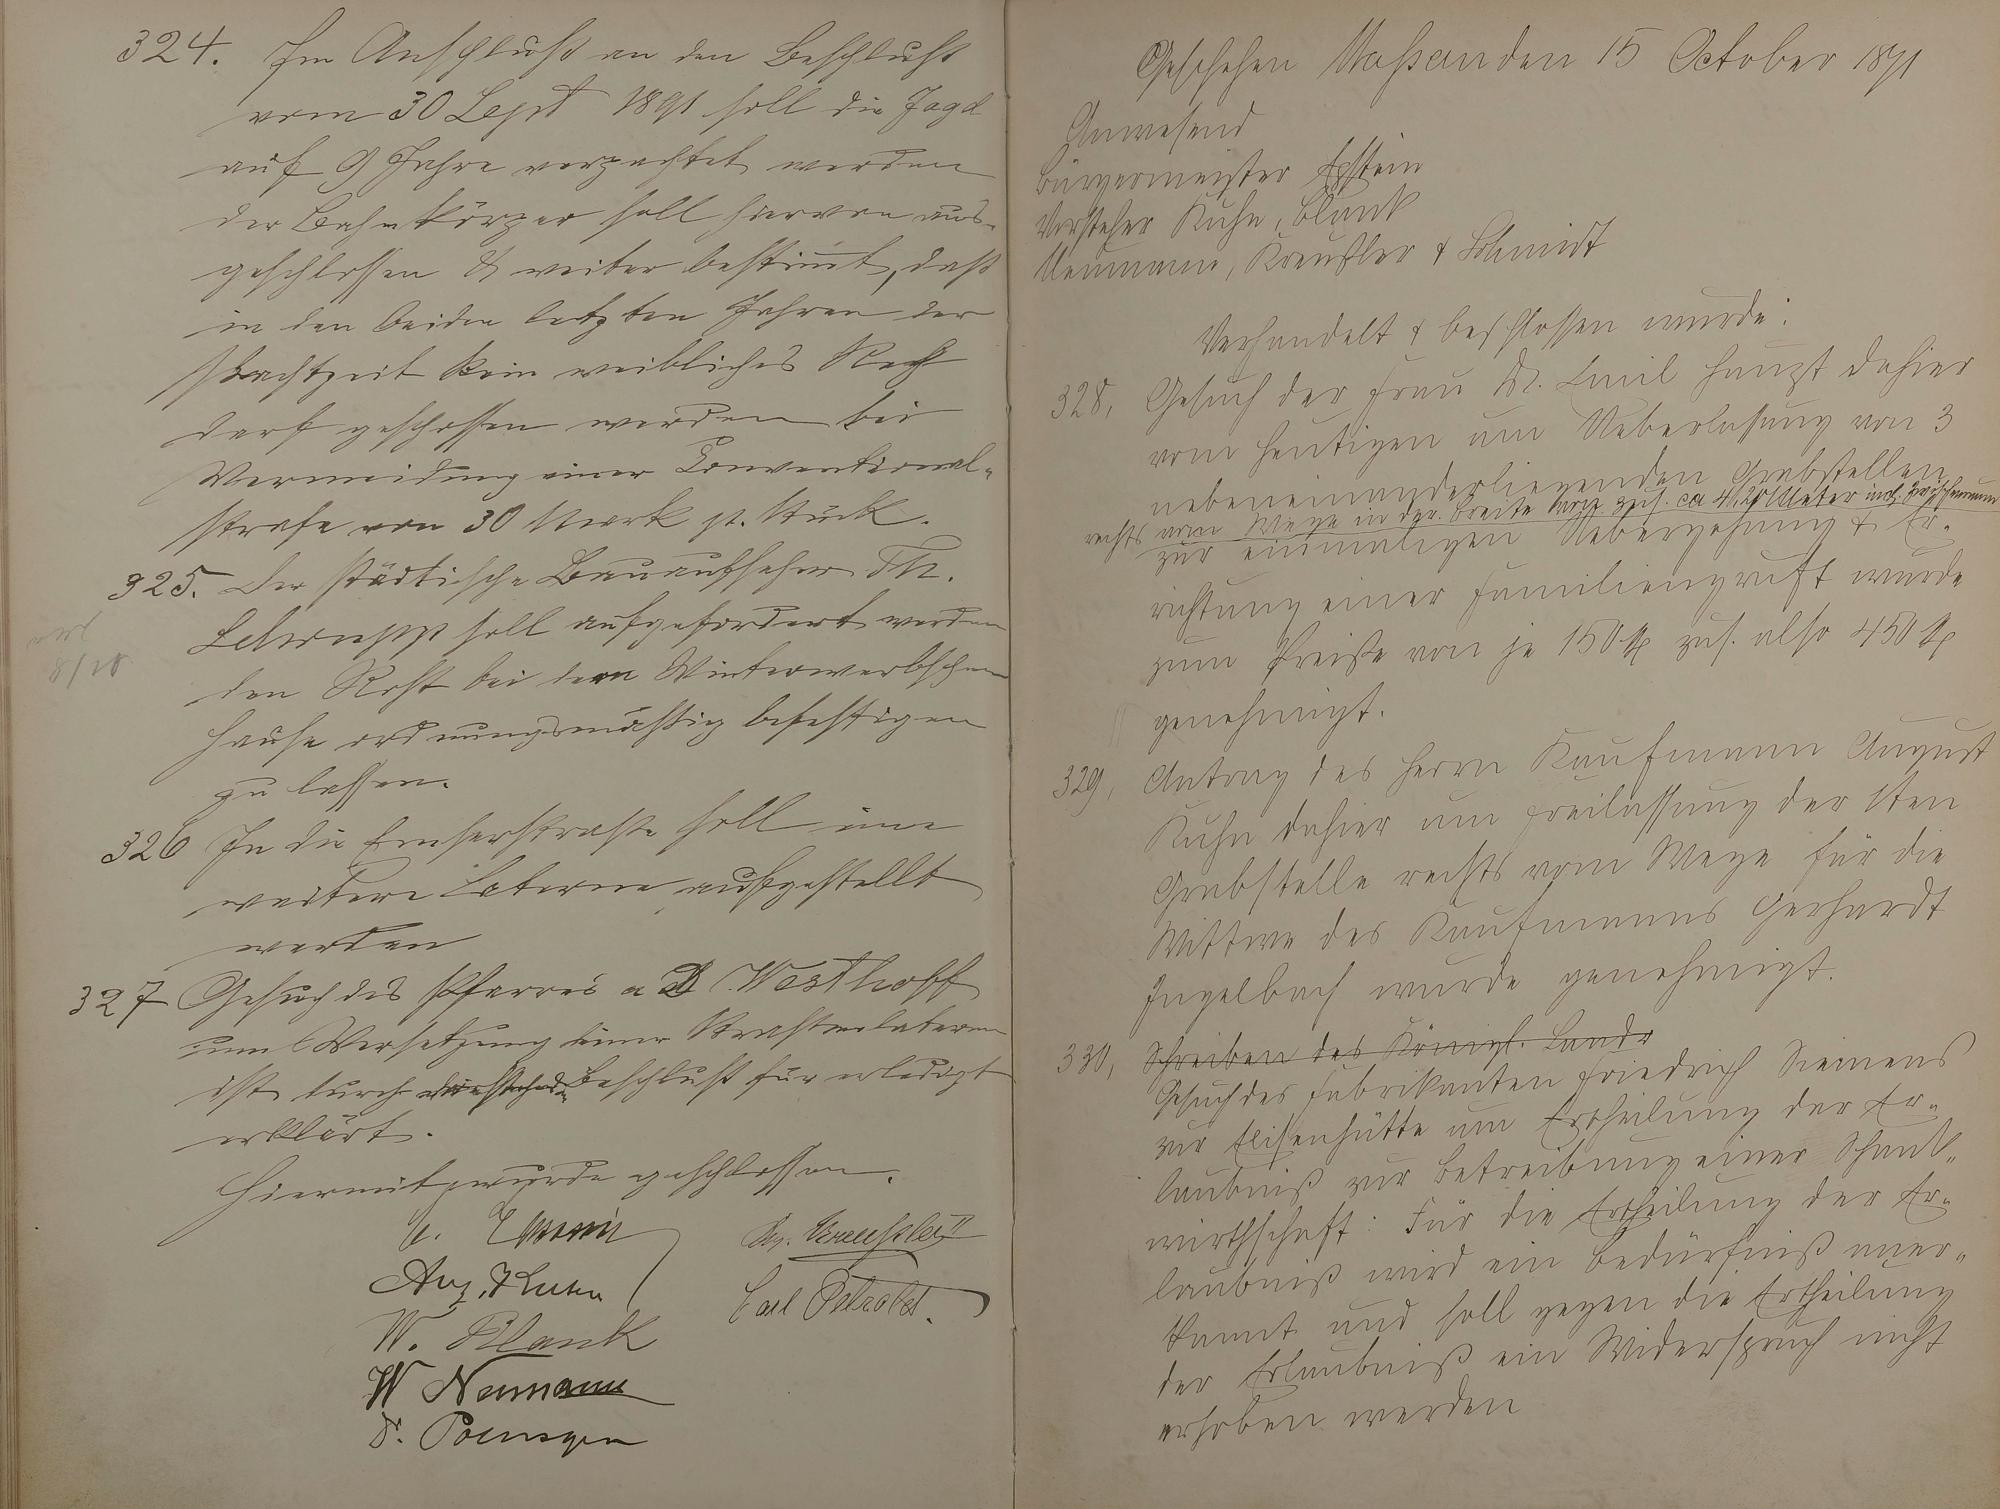 324. Im Anschluß an den Beschluß
vom 30 Sept 1891 soll die Jagd
auf 9 Jahre verpachtet werden
der Bahnkörper soll hiervon aus-
geschlossen & weiter bestimmt, daß
in den beiden letzten Jahren der
Pachtzeit kein weibliches Reh
darf geschossen werden bei
Vermeidung einer Conventional-
strafe von 30 Mark p. Stück.
325. Der städtische Bauaufseher Th.
Schrupp soll aufgefordert werden
den Rost bei dem
Hause ordnungsmäßig befestigen
zu lassen.
326 In die Emserstraße soll eine
weitere Laterne aufgestellt
werden
327 Gesuch des Pfarres a D Westhoff
um Versetzung einer Straßenlaterne
ist durch Beschluß für erledigt
erklärt.
Hiermit wurde geschlossen.
Aug. Kuhn
W. Blank
W Neumann
F. Poensgen
Kreußler II
Carl Petrold.
Geschehen Nassau den 15 October 1891
Anwesend
Bürgermeister Epstein
Vorsteher Kuhn, Blank
Neumann, Kreußler & Schmidt
Verhandelt & beschlossen wurde:
328, Gesuch der Frau Dr. Emil Haupt dahier
vom heutigen um Ueberlassung von 3
nebeneinanderliegenden Grabstellen
rechts vom Wege in der Breite von zus. ca 4,20 Meter incl. Zwischenraum
zur einmaligen Uebergehung & Er-
richtung einer Familiengruft wurde
zum Preiße von je 150 M zus. also 450 M
genehmigt.
329, Antrag des Herrn Kaufmann August
Kuhn dahier um Freilassung der 1ten
Grabstelle rechts vom Wege für die
Wittwe des Kaufmanns Gerhardt
Ingelbach wurde genehmigt.
330, Schreiben des Königl. Landr
Gesuch des Fabrikanten Friedrich Siemens
zur Elisenhütte um Ertheilung der Er-
laubniß zur Betreibung einer Schank-
wirthschaft: Für die Ertheilung der Er-
laubniß wird ein Bedürfniß aner-
kannt und soll gegen die Ertheilung
der Erlaubniß ein Widerspruch nicht
erhoben werden